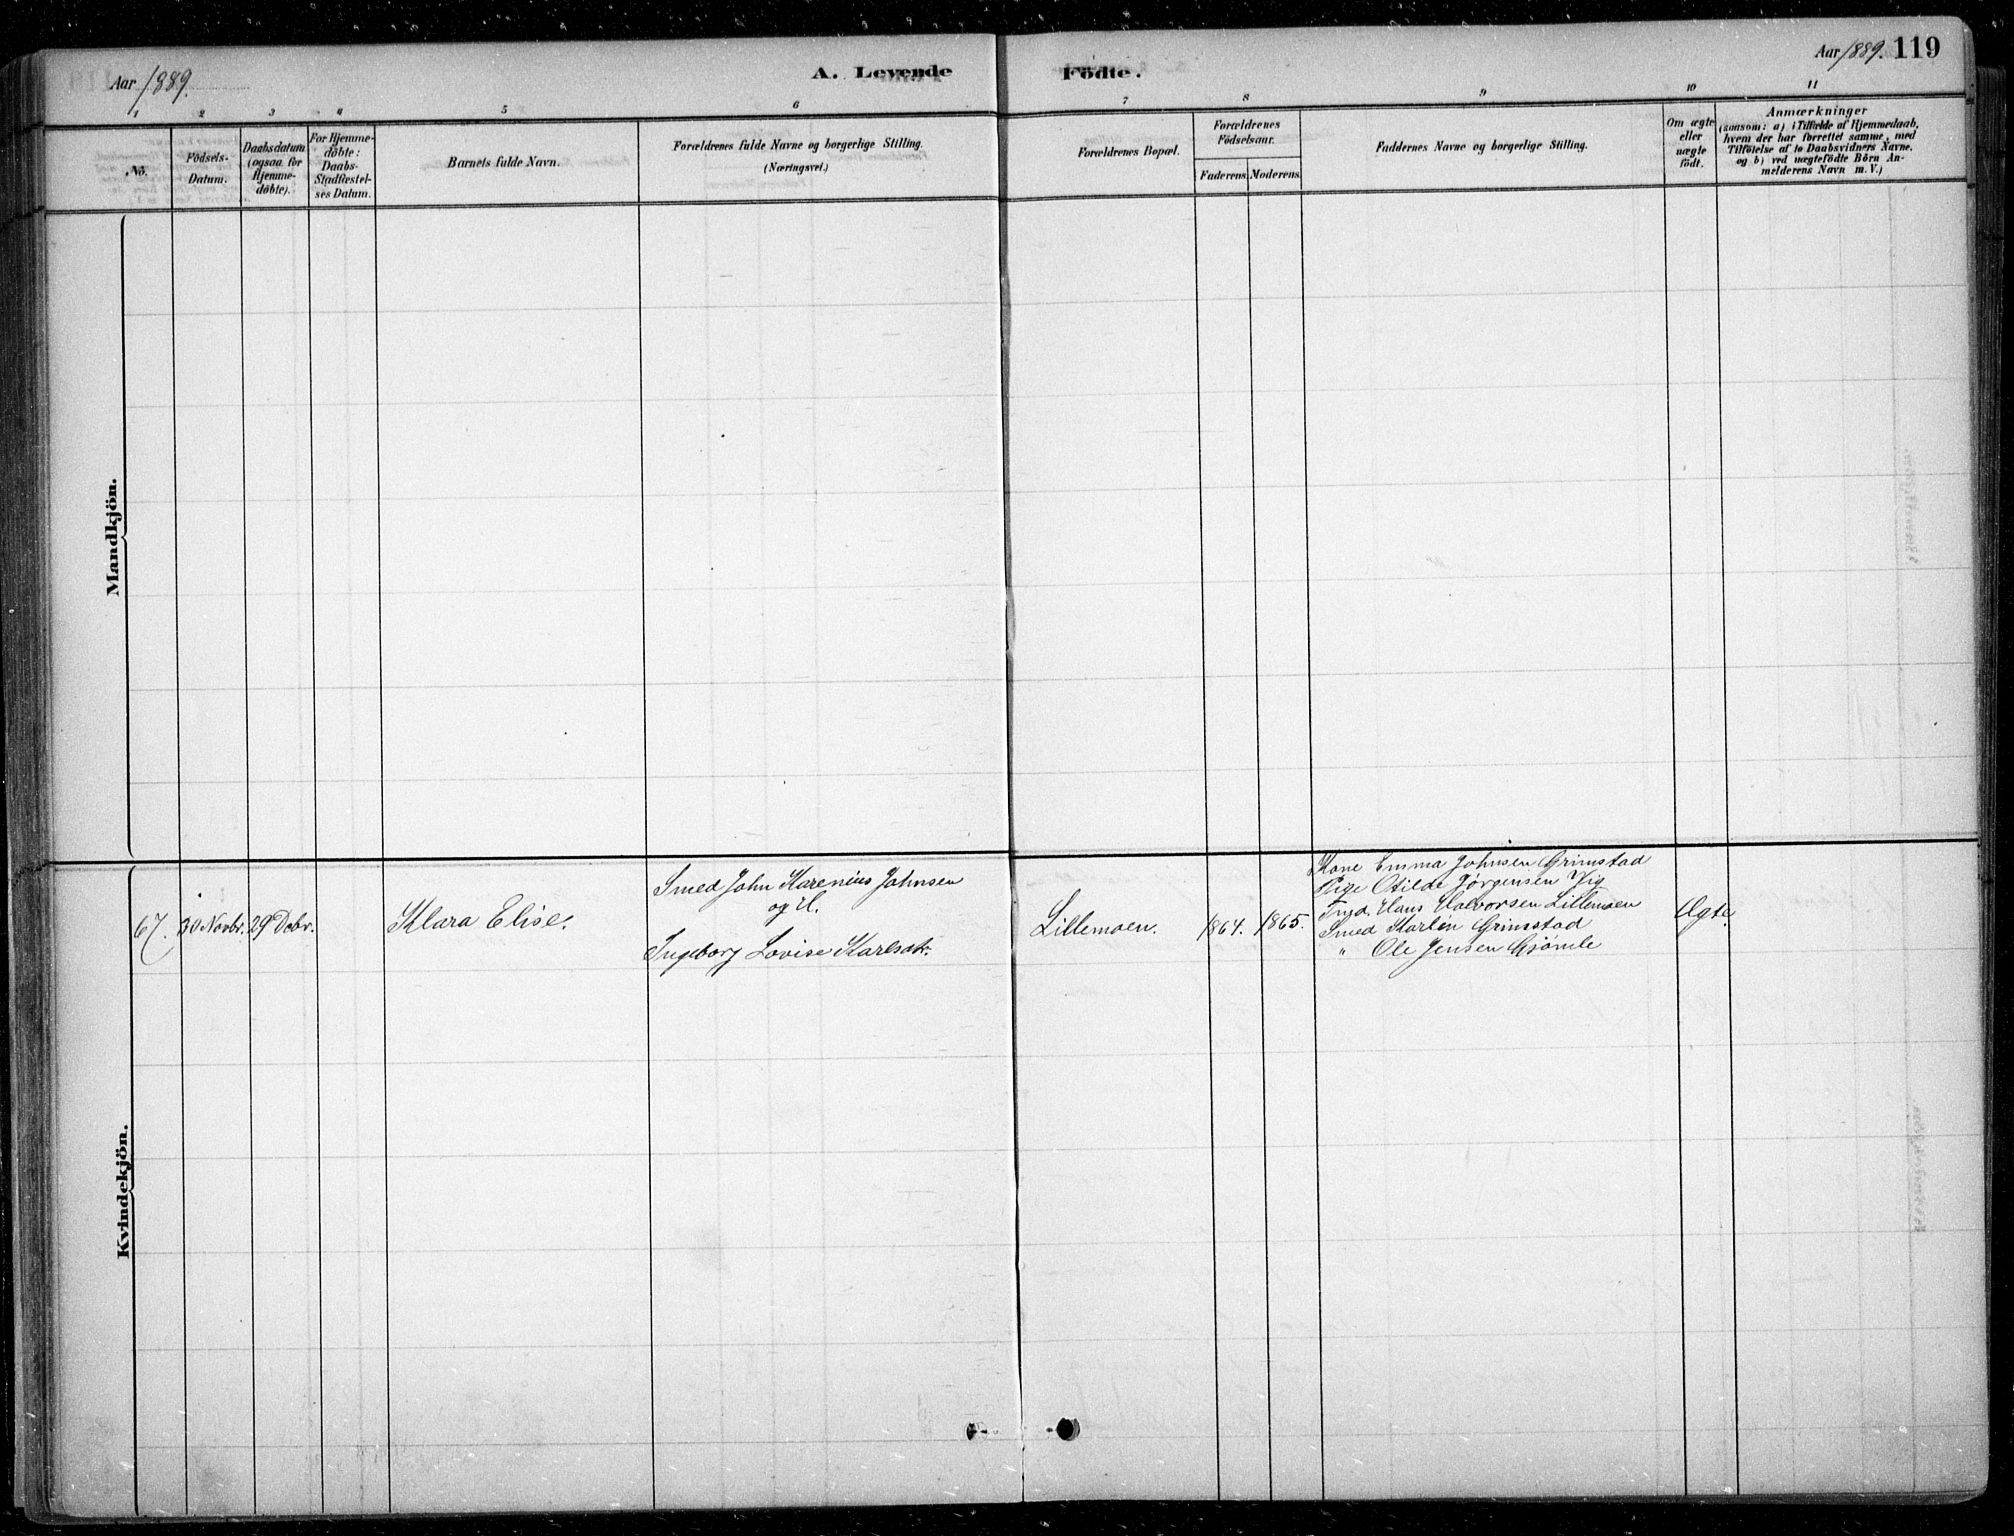 Aar 1889.
A. Levende Födte.
Aar 1889. 119
1 2 3 4 5 6 7 8 9 10 11
No.
Födsels-
Datum.
Daabsdatum
(ogsaa for
Hjemme-
döbte).
For Hjemme-
döbte:
Daabs-
Stadfæstel-
ses Datum.
Barnets fulde Navn.
Forældrenes fulde Navne og borgerlige Stilling.
(Næringsvei.)
Forældrenes Bopæl.
Forældrenes
Födselsaar.
Faderens. Moderens.
Faddernes Navne og borgerlige Stilling.
Om ægte
eller
uægte
födt.
Anmærkninger
(saasom: a) i Tilfælde af Hjemmedaab,
hvem der har forrettet samme, med
Tilföielse af to Daabsvidners Navne,
og b) ved uægtefödte Börn An-
melderens Navn m. V.)
Mandkjön.
Kvindekjön.
67. 30 Novbr. 29 Debr.
Klara Elise.
Smed John Karenius Johnsen
og H.
Ingeborg Lovise Karlsdt.
Lillemoen.
1864. 1865.
Kone Emma Johnsen Grimstad
Pige Otilde Jörgensen Vig
Hans Halvorsen Lillemoen
Smed Martin Grimstad
" Ole Jensen Gjömle
Ægte